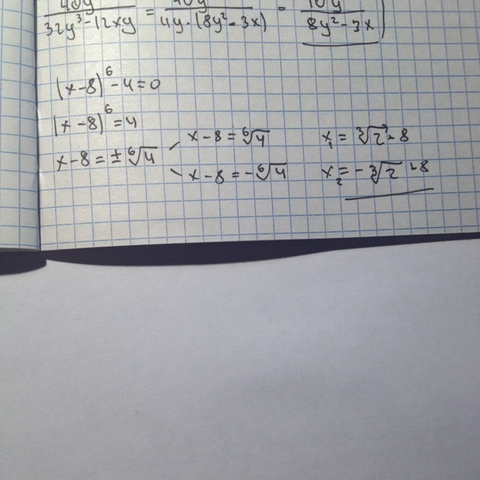 40y/(32y³-12xy) = 40y/(4y·(8y²-3x)) = 10y/(8y²-3x)
(x-8)⁶-4=0
(x-8)⁶=4
x-8=±⁶√4 x-8=⁶√4 x₁=³√2+8
x-8=-⁶√4 x₂=-³√2+8